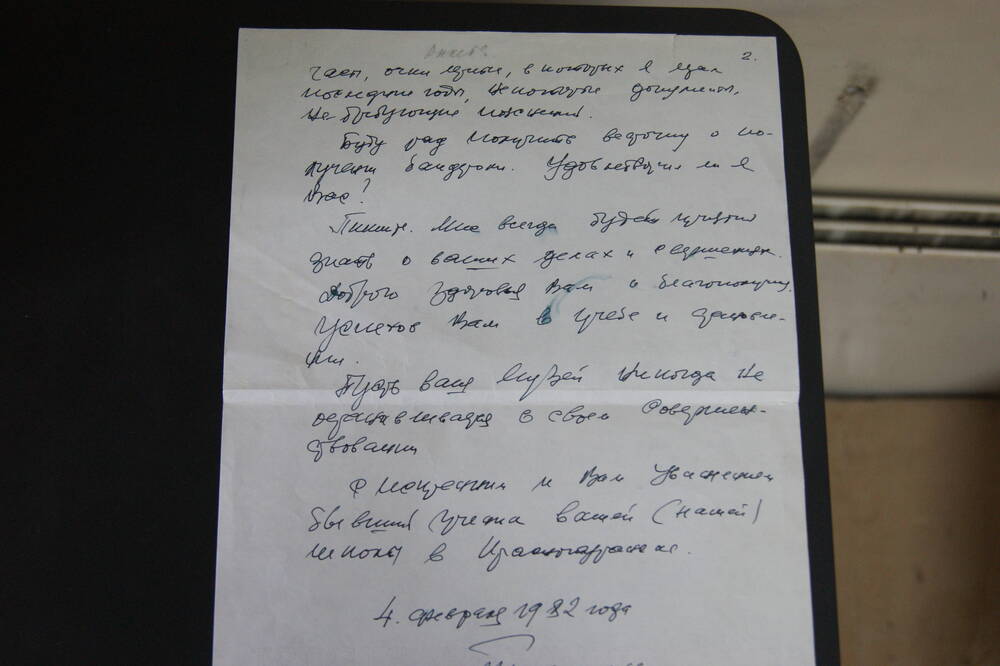 2.
часы, очки мои, в которых я
последние годы, некоторые документы,
не требующие пояснений.
Буду рад получить весточку о по-
лучении бандероли. Удовлетворил ли я
Вас?
Пишите. Мне всегда будет приятно
знать о ваших делах и свершениях.
Доброго здоровья Вам и благополучия,
успехов Вам в учебе и
Пусть ваш музей никогда не
останавливается в своем совершен-
ствовании
С искренним к Вам уважением
бывший ученик вашей (нашей)
школы в
4. февраля 1982 года